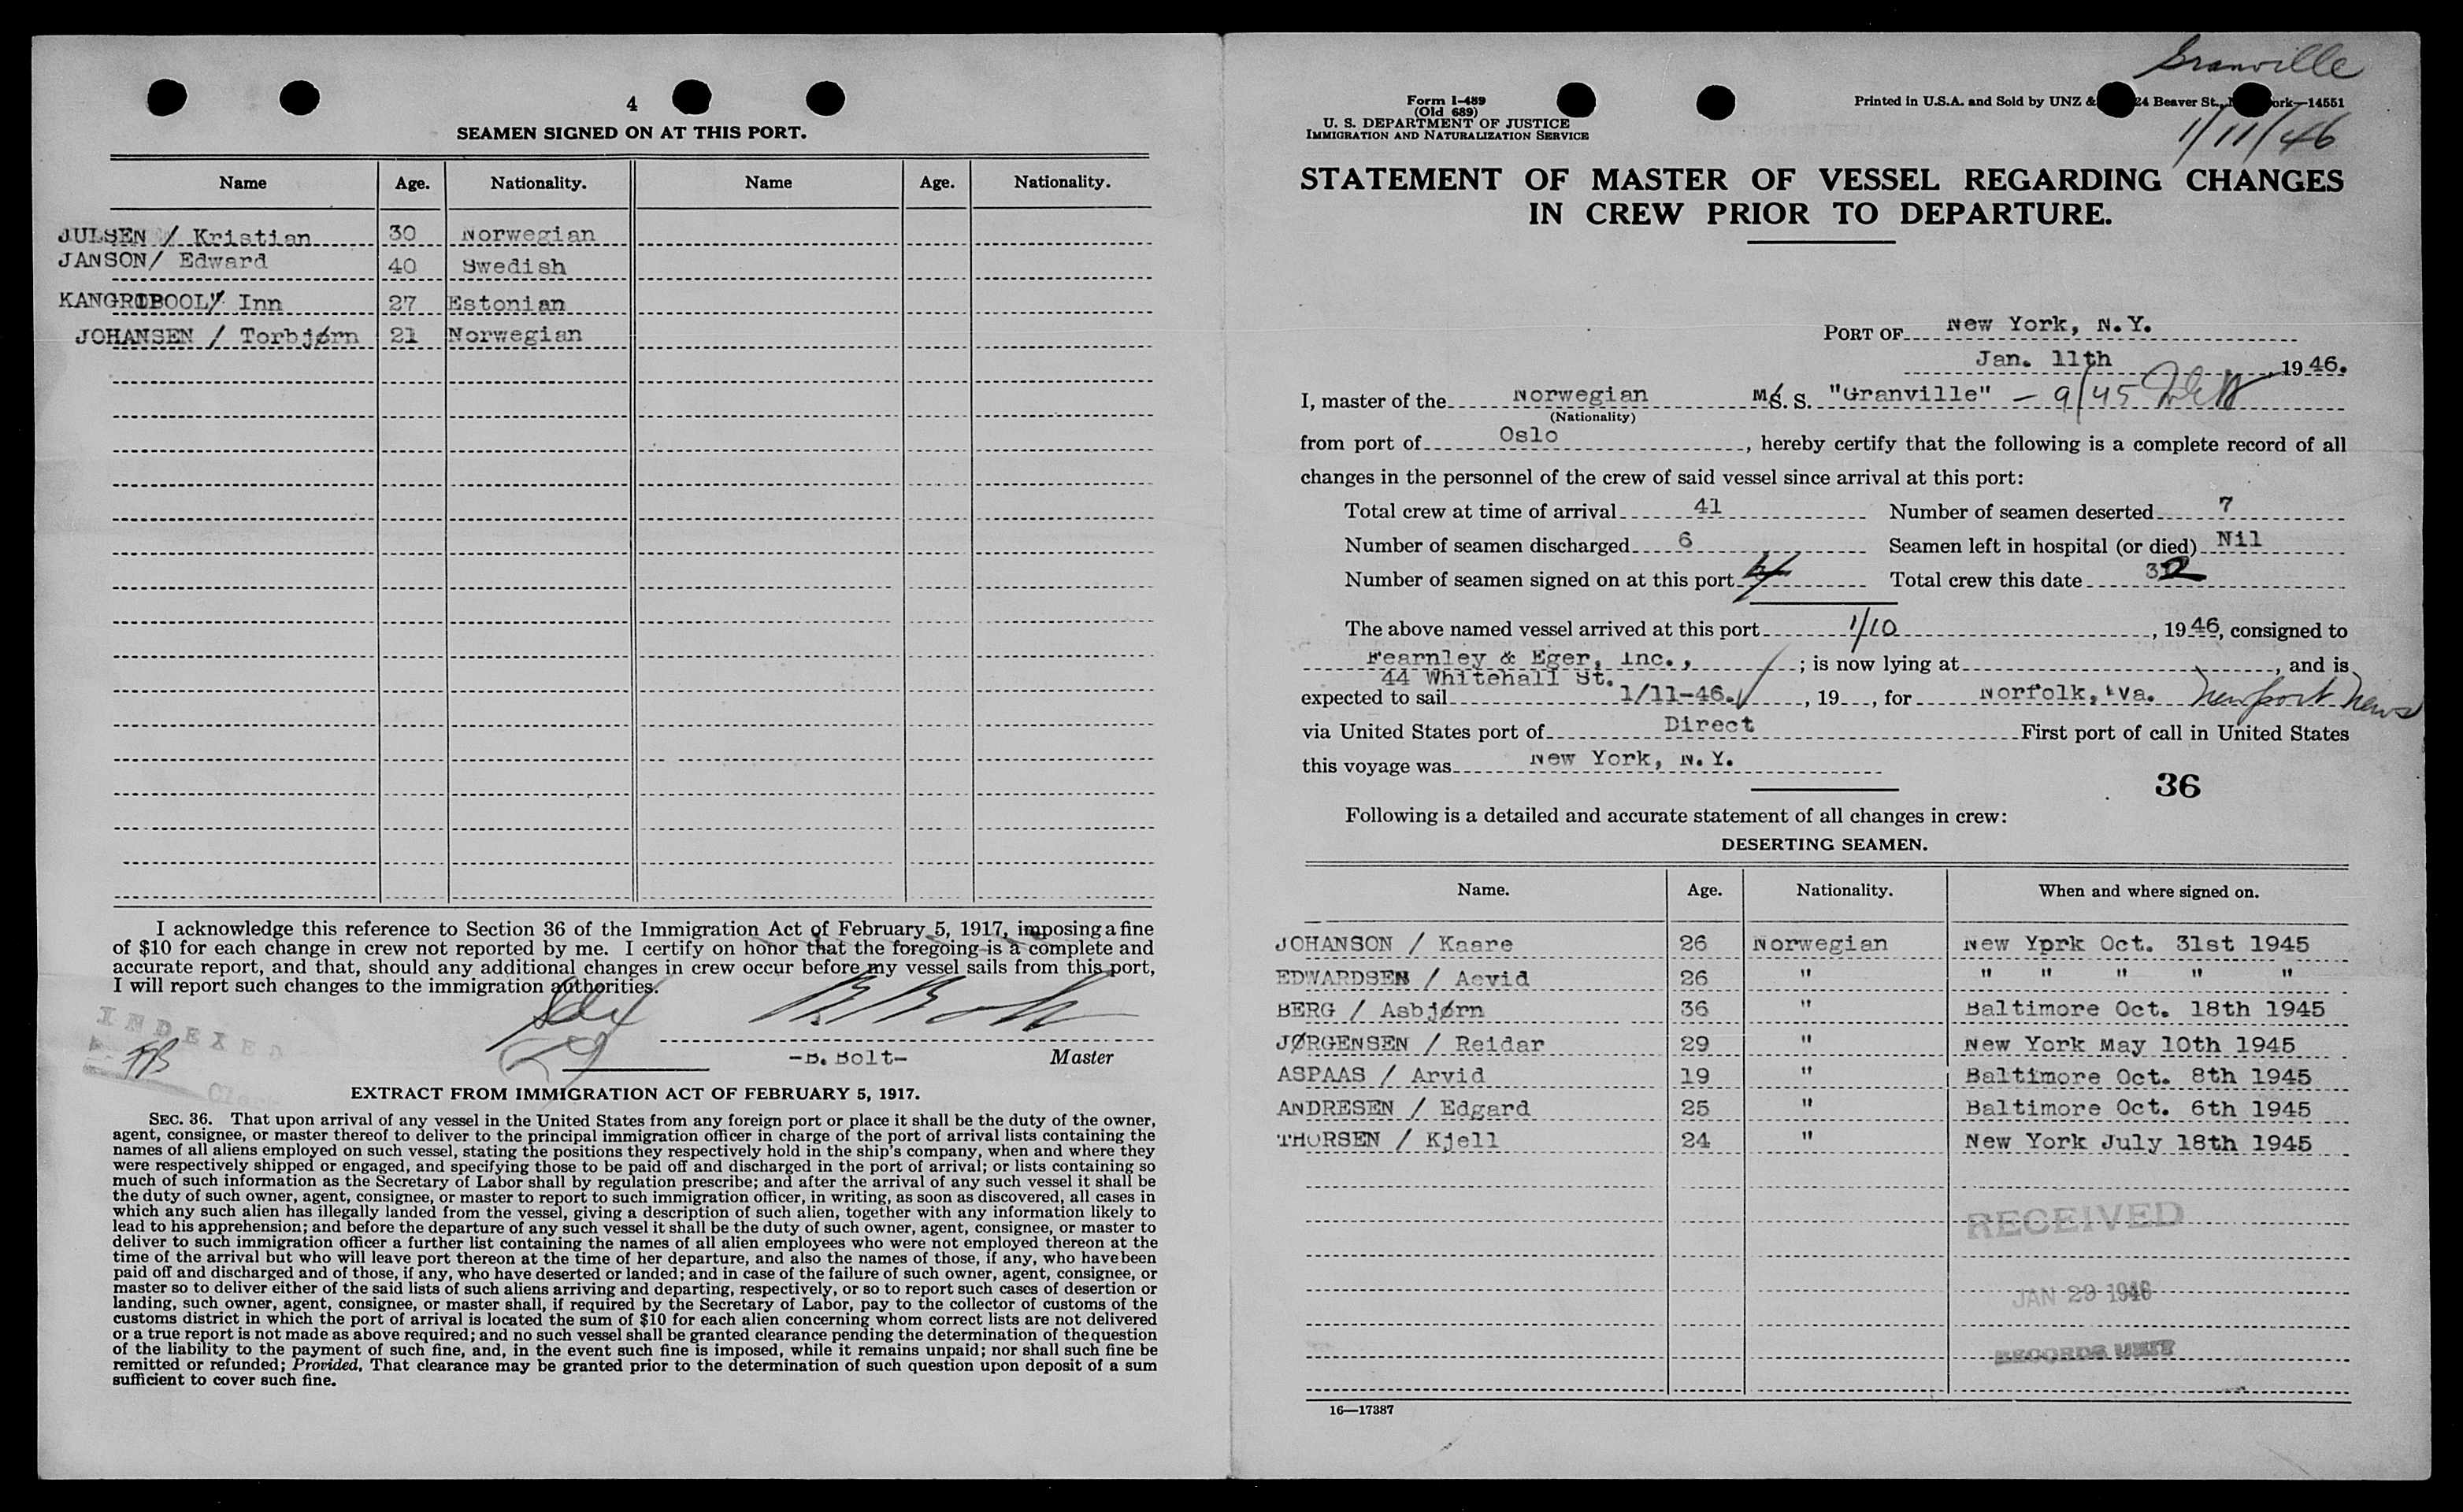 4
SEAMEN SIGNED ON AT THIS PORT.
Name Age. Nationality. Name Age. Nationality.
JULSEN / Kristian 30 Norwegian
JANSON/ Edward 40 Swedish
Inn 27 Estonian
JOHANSEN / Torbjørn 21 Norwegian
I acknowledge this reference to Section 36 of the Immigration Act of February 5, 1917, imposing a fine
of $10 for each change in crew not reported by me. I certify on honor that the foregoing is a complete and
accurate report, and that, should any additional changes in crew occur before my vessel sails from this port,
I will report such changes to the immigration authorities.
INDEXED
-B. Bolt- Master
Clerk
EXTRACT FROM IMMIGRATION ACT OF FEBRUARY 5, 1917.
SEC. 36. That upon arrival of any vessel in the United States from any foreign port or place it shall be the duty of the owner,
agent, consignee, or master thereof to deliver to the principal immigration officer in charge of the port of arrival lists containing the
names of all aliens employed on such vessel, stating the positions they respectively hold in the ship's company, when and where they
were respectively shipped or engaged, and specifying those to be paid off and discharged in the port of arrival; or lists containing so
much of such information as the Secretary of Labor shall by regulation prescribe; and after the arrival of any such vessel it shall be
the duty of such owner, agent, consignee, or master to report to such immigration officer, in writing, as soon as discovered, all cases in
which any such alien has illegally landed from the vessel, giving a description of such alien, together with any information likely to
lead to his apprehension; and before the departure of any such vessel it shall be the duty of such owner, agent, consignee, or master to
deliver to such immigration officer a further list containing the names of all alien employees who were not employed thereon at the
time of the arrival but who will leave port thereon at the time of her departure, and also the names of those, if any, who have been
paid off and discharged and of those, if any, who have deserted or landed; and in case of the failure of such owner, agent, consignee, or
master so to deliver either of the said lists of such aliens arriving and departing, respectively, or so to report such cases of desertion or
landing, such owner, agent, consignee, or master shall, if required by the Secretary of Labor, pay to the collector of customs of the
customs district in which the port of arrival is located the sum of $10 for each alien concerning whom correct lists are not delivered
or a true report is not made as above required; and no such vessel shall be granted clearance pending the determination of the question
of the liability to the payment of such fine, and, in the event such fine is imposed, while it remains unpaid; nor shall such fine be
remitted or refunded; Provided, That clearance may be granted prior to the determination of such question upon deposit of a sum
sufficient to cover such fine.
Granville
Form I-489
(Old 689)
U. S. DEPARTMENT OF JUSTICE
IMMIGRATION AND NATURALIZATION SERVICE
Printed in U.S.A. and Sold by UNZ & 24 Beaver St., ork—14551
1/11/46
STATEMENT OF MASTER OF VESSEL REGARDING CHANGES
IN CREW PRIOR TO DEPARTURE.
PORT OF New York, N.Y.
Jan. 11th, 1946.
I, master of the Norwegian M/S. S. "Granville" – 9/45
(Nationality)
from port of Oslo, hereby certify that the following is a complete record of all
changes in the personnel of the crew of said vessel since arrival at this port:
Total crew at time of arrival 41 Number of seamen deserted 7
Number of seamen discharged 6 Seamen left in hospital (or died) Nil
Number of seamen signed on at this port 4 Total crew this date 32
The above named vessel arrived at this port 1/10, 1946, consigned to
Fearnley & Eger, Inc., ; is now lying at , and is
44 Whitehall St.
expected to sail 1/11-46. , 19 , for Norfolk, Va. Newport News
via United States port of Direct First port of call in United States
this voyage was New York, N.Y.
36
Following is a detailed and accurate statement of all changes in crew:
DESERTING SEAMEN.
Name. Age. Nationality. When and where signed on.
JOHANSON / Kaare 26 Norwegian New Yprk Oct. 31st 1945
EDWARDSEN / Aevid 26 " " " " " "
BERG / Asbjørn 36 " Baltimore Oct. 18th 1945
JØRGENSEN / Reidar 29 " New York May 10th 1945
ASPAAS / Arvid 19 " Baltimore Oct. 8th 1945
ANDRESEN / Edgard 25 " Baltimore Oct. 6th 1945
THORSEN / Kjell 24 " New York July 18th 1945
RECEIVED
JAN 29 1946
RECORDS UNIT
16—17387